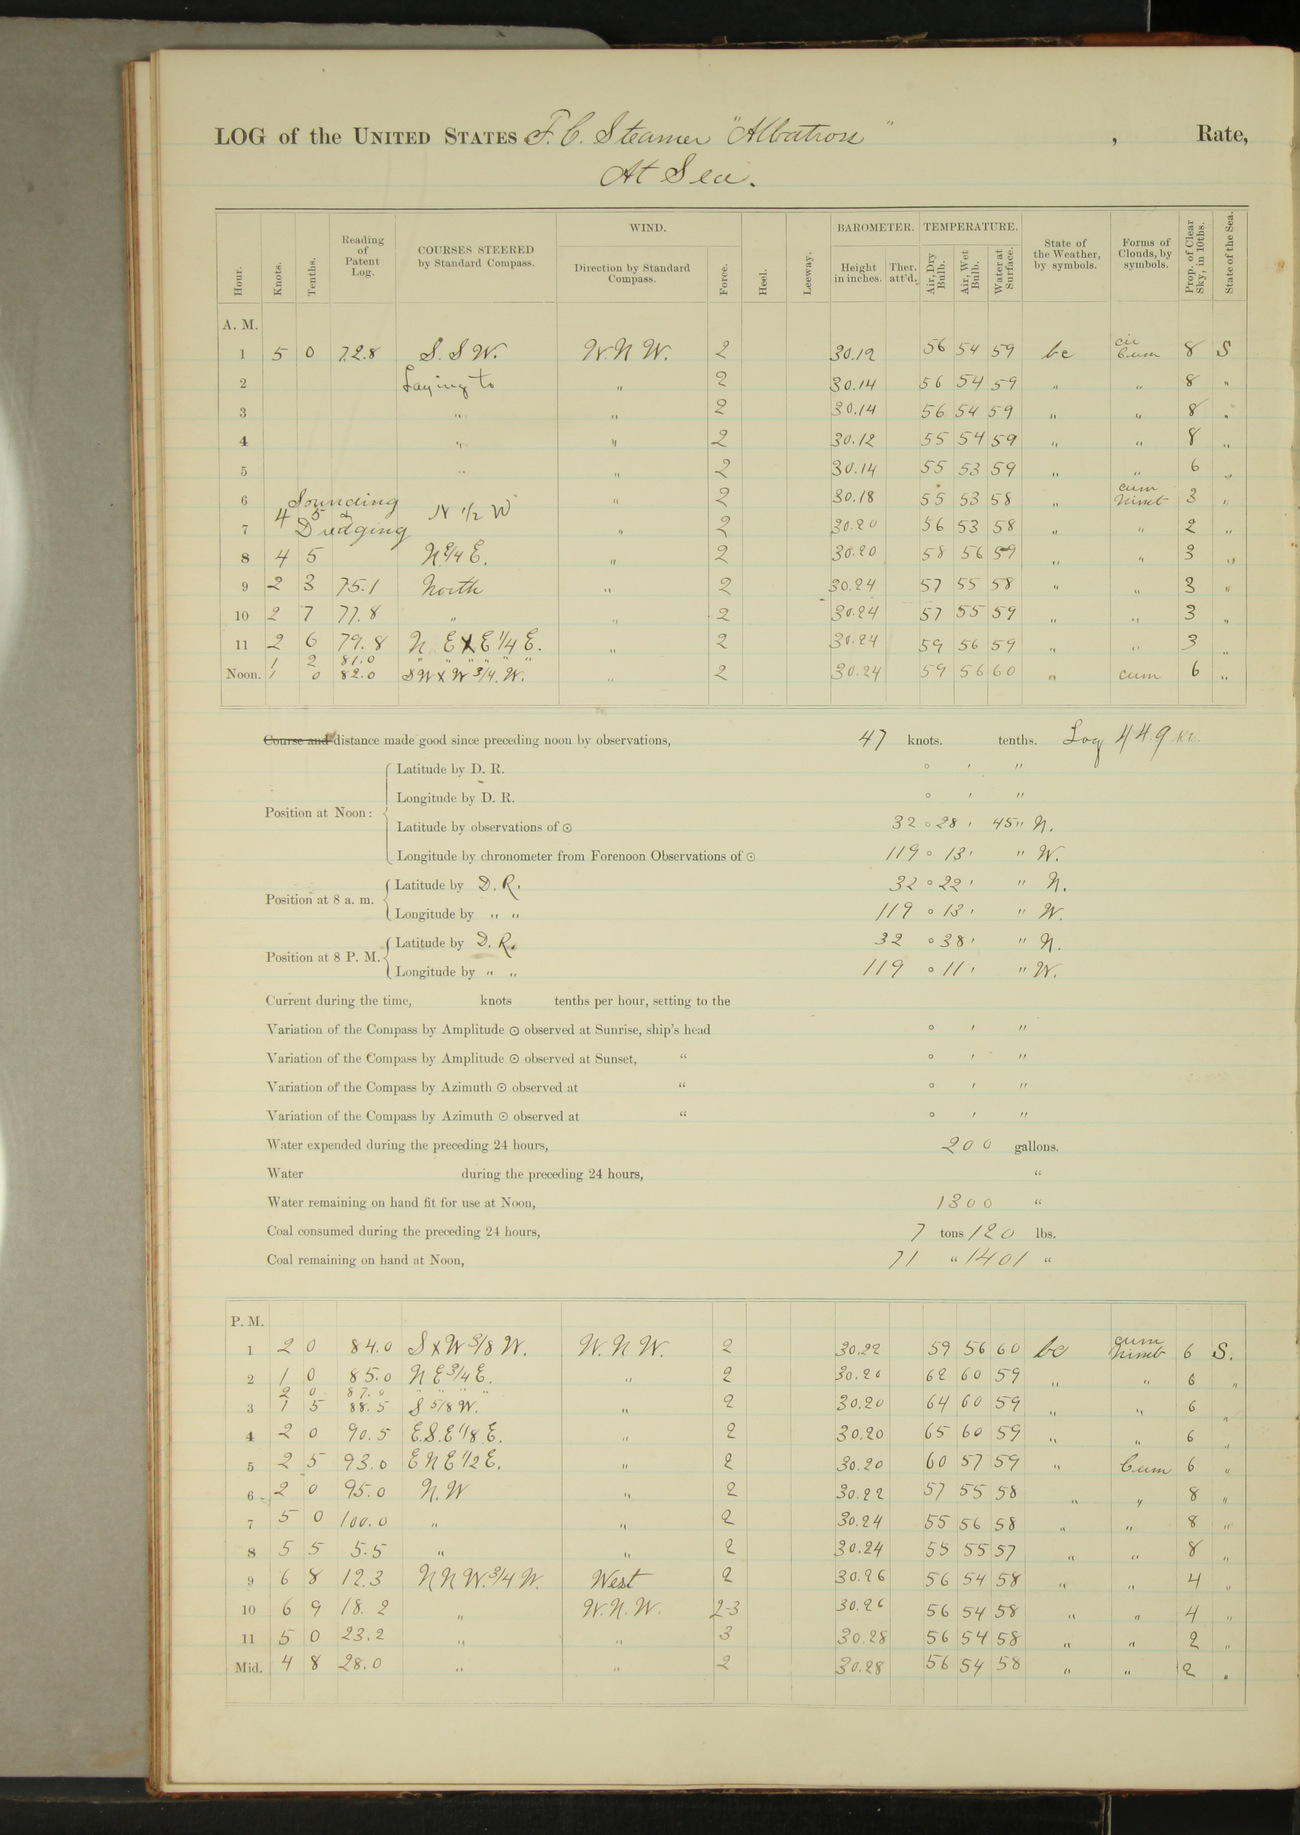 LOG of the UNITED STATES F. C. Steamer "Albatross" , Rate,
At Sea.
Hour. Knots. Tenths. Reading of Patent Log. COURSES STEERED by Standard Compass. WIND. Direction by Standard Compass. Force. Heel. Leeway. BAROMETER. Height in inches. Ther. att'd. TEMPERATURE. Air, Dry Bulb. Air, Wet Bulb. Water at Surface. State of the Weather, by symbols. Forms of Clouds, by symbols. Prop. of Clear Sky, in 10ths. State of the Sea.
A. M.
1 5 0 72.8 S. S W. W. N W. 2 30.12 56 54 59 bc cir Cum 8 S
2 Laying to " 2 30.14 56 54 59 " " 8 "
3 " " 2 30.14 56 54 59 " " 8 "
4 " " 2 30.12 55 54 59 " " 8 "
5 " " 2 30.14 55 53 59 " " 6 "
6 Sounding " 2 30.18 55 53 58 " cum Nimb 3 "
4 5 & N 1/2 W
7 Dredging " 2 30.20 56 53 58 " " 2 "
8 4 5 N 3/4 E. " 2 30.20 58 56 59 " " 3 "
9 2 3 75.1 North " 2 30.24 57 55 58 " " 3 "
10 2 7 77.8 " " 2 30.24 57 55 59 " " 3 "
11 2 6 79.8 N. E X E 1/4 E. " 2 30.24 59 56 59 " " 3 "
1 2 81.0 " " " " " "
Noon. 1 0 82.0 SW X W 3/4. W. " 2 30.24 59 56 60 " cum 6 "
Course and distance made good since preceding noon by observations, 47 knots. tenths. Log 44.9 kn.
Position at Noon: Latitude by D. R. ° ′ ″
Longitude by D. R. ° ′ ″
Latitude by observations of ☉ 32 ° 28 ′ 45 ″ N.
Longitude by chronometer from Forenoon Observations of ☉ 119 ° 13 ′ ″ W.
Position at 8 a. m. Latitude by D. R. 32 ° 22 ′ ″ N.
Longitude by " " 119 ° 13 ′ ″ W.
Position at 8 P. M. Latitude by D. R. 32 ° 38 ′ ″ N.
Longitude by " " 119 ° 11 ′ ″ W.
Current during the time, knots tenths per hour, setting to the
Variation of the Compass by Amplitude ☉ observed at Sunrise, ship's head ° ′ ″
Variation of the Compass by Amplitude ☉ observed at Sunset, " ° ′ ″
Variation of the Compass by Azimuth ☉ observed at " ° ′ ″
Variation of the Compass by Azimuth ☉ observed at " ° ′ ″
Water expended during the preceding 24 hours, 200 gallons.
Water during the preceding 24 hours, "
Water remaining on hand fit for use at Noon, 1300 "
Coal consumed during the preceding 24 hours, 7 tons 120 lbs.
Coal remaining on hand at Noon, 71 " 1401 "
P. M.
1 2 0 84.0 S X W 3/8 W. W. N W. 2 30.22 59 56 60 bc cum Nimb 6 S.
2 1 0 85.0 N E 3/4 E. " 2 30.20 62 60 59 " " 6 "
2 0 87.0 " " " "
3 1 5 88.5 S 5/8 W. " 2 30.20 64 60 59 " " 6 "
4 2 0 90.5 E.S.E 1/8 E. " 2 30.20 65 60 59 " " 6 "
5 2 5 93.0 E N E 1/2 E. " 2 30.20 60 57 59 " Cum 6 "
6 2 0 95.0 N. W " 2 30.22 57 55 58 " " 8 "
7 5 0 100.0 " " 2 30.24 55 56 58 " " 8 "
8 5 5 5.5 " " 2 30.24 55 55 57 " " 8 "
9 6 8 12.3 N N W. 3/4 W. West 2 30.26 56 54 58 " " 4 "
10 6 9 18.2 " W. N. W. 2-3 30.26 56 54 58 " " 4 "
11 5 0 23.2 " " 3 30.28 56 54 58 " " 2 "
Mid. 4 8 28.0 " " 2 30.28 56 54 58 " " 2 "